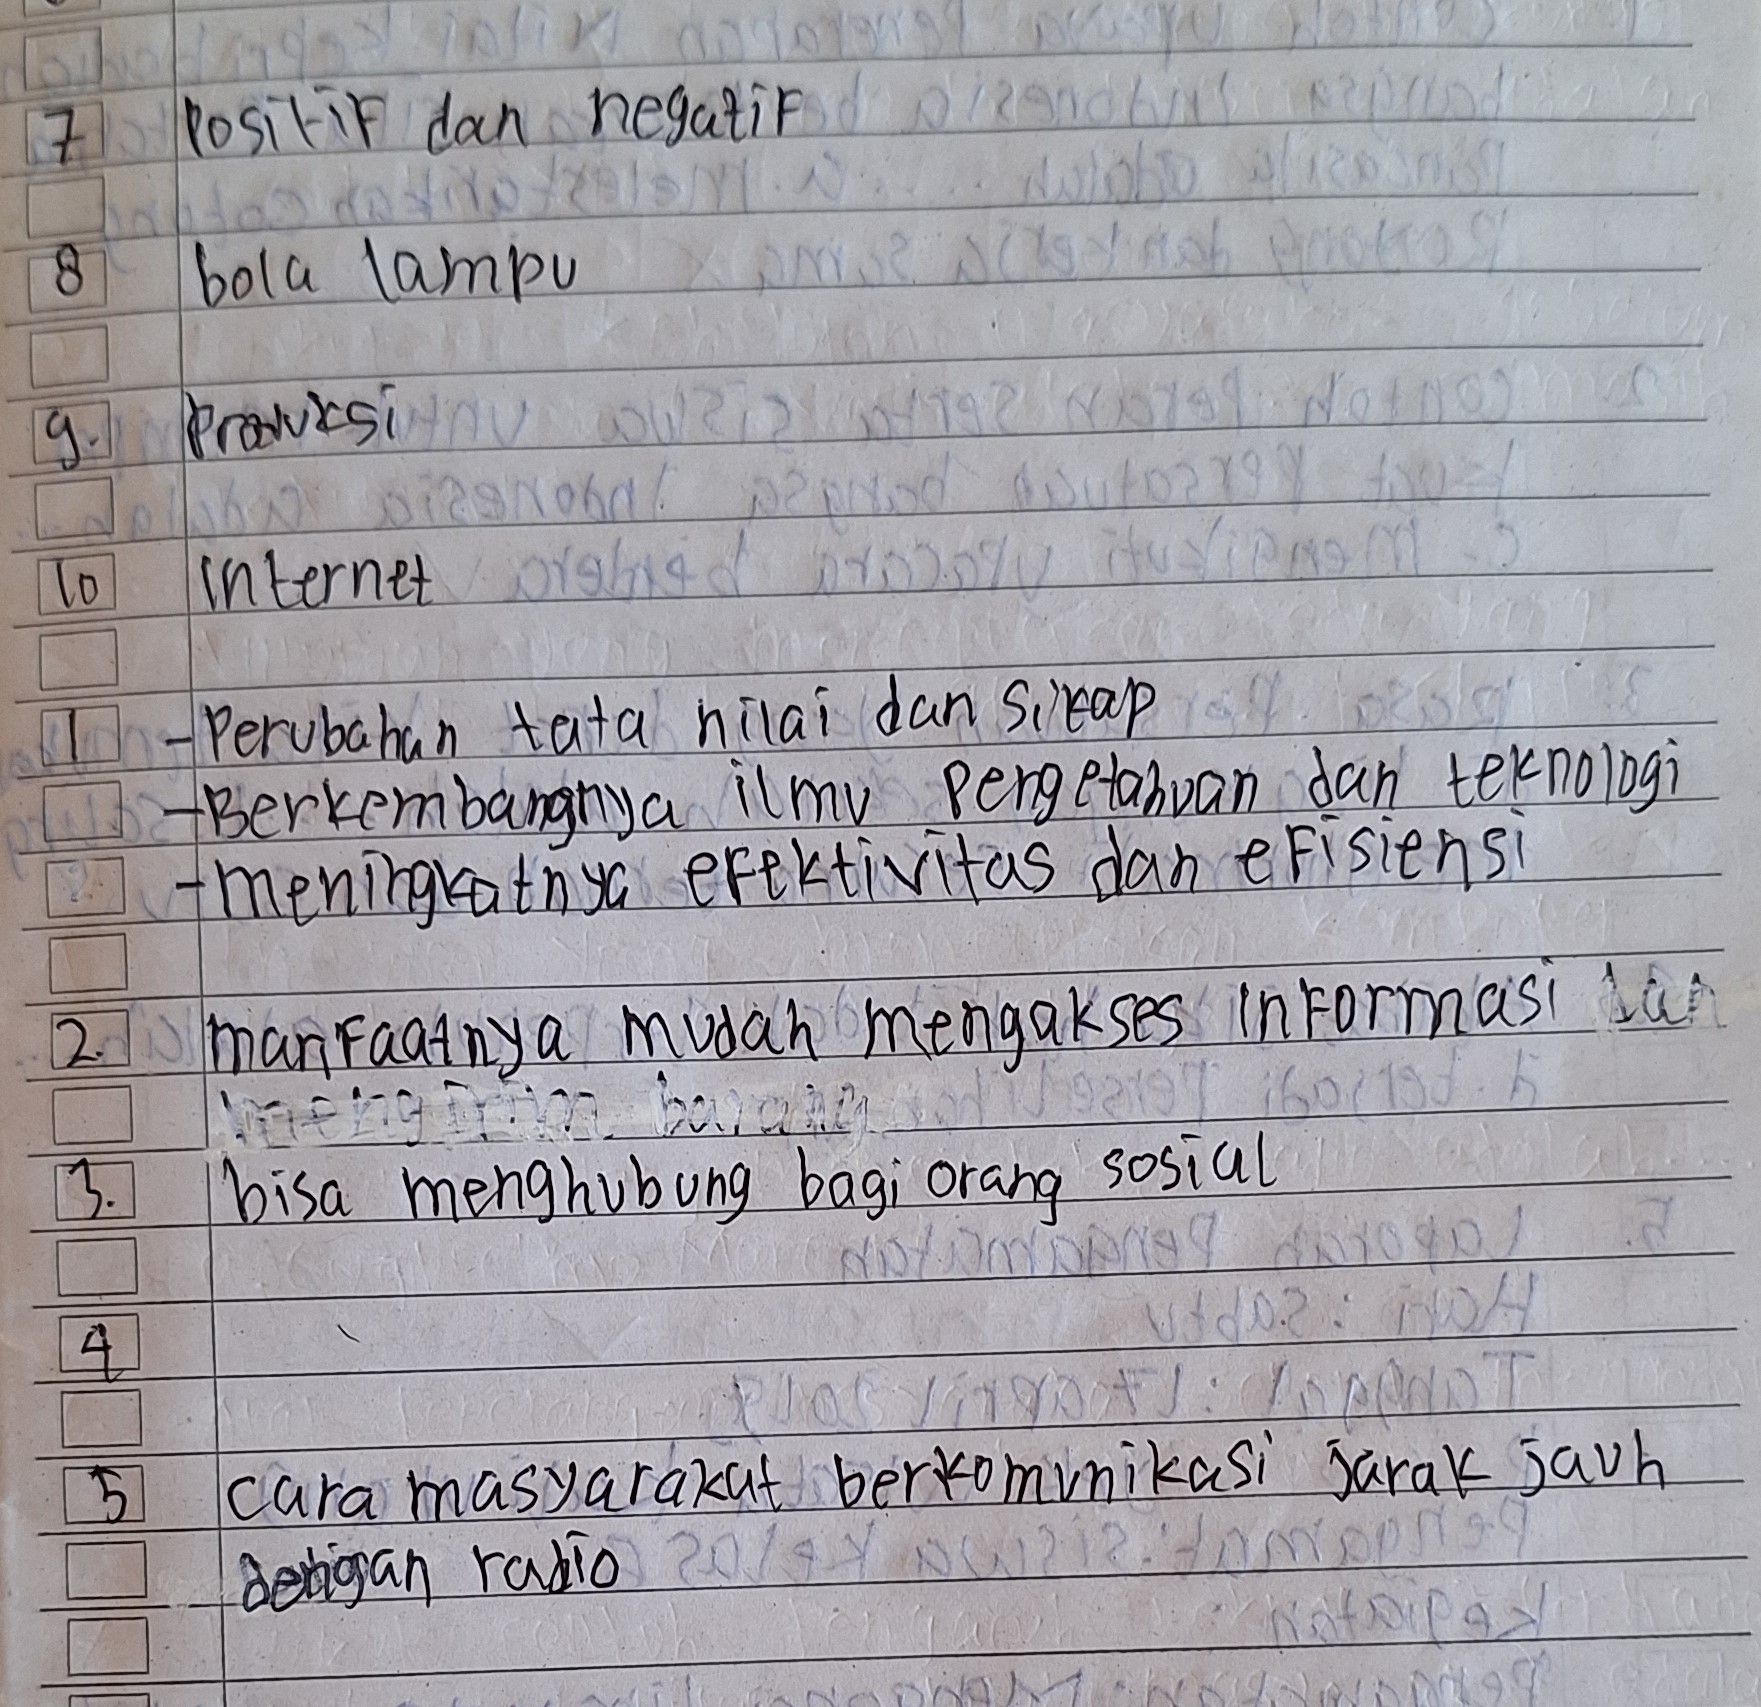 7 Positif dan negatif
8 bola lampu
9. Produksi
10 internet
1 - Perubahan tata nilai dan sikap
- Berkembangnya ilmu Pengetahuan dan teknologi
- meningkatnya efektivitas dan efisiensi
2. manfaatnya mudah mengakses informasi dan
mengirim barang
3. bisa menghubung bagi orang sosial
4
5 cara masyarakat berkomunikasi jarak jauh
dengan radio